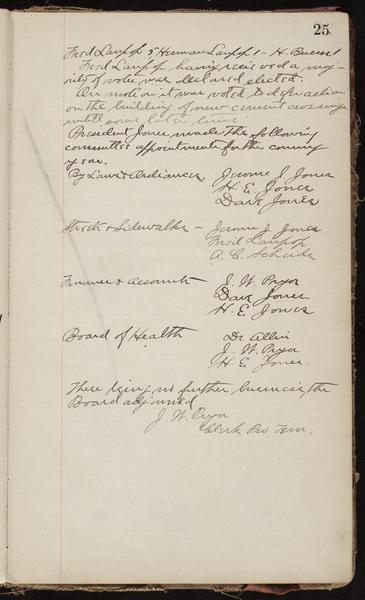 25
Fred Lanpop 5 Herman Lanpop 1 - H. 1
Fred Lanpop having received a maj-
ority of votes was declared elected.
On motion it was voted to defer action
on the building of new cement crossings
until some later time.
President Jones made the following
committee appointments for the coming
year.
By Laws & Ordinances. Jerome J. Jones
H. E. Jones
Dave Jones
Streets & Sidewalks - Jerome J. Jones
Fred Lanpop
A. C. Scheide
Finance & Accounts J. W. Pryor
Dave Jones
H. E. Jones
Board of Health Dr. Allin
J. W. Pryor
H. E. Jones.
There being no further business, the
Board adjourned
J. W. Pryor
Clerk Pro Tem.